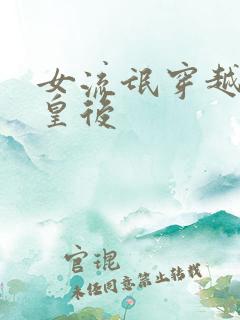 女流氓穿越
皇後
官琨
未经同意禁止转载